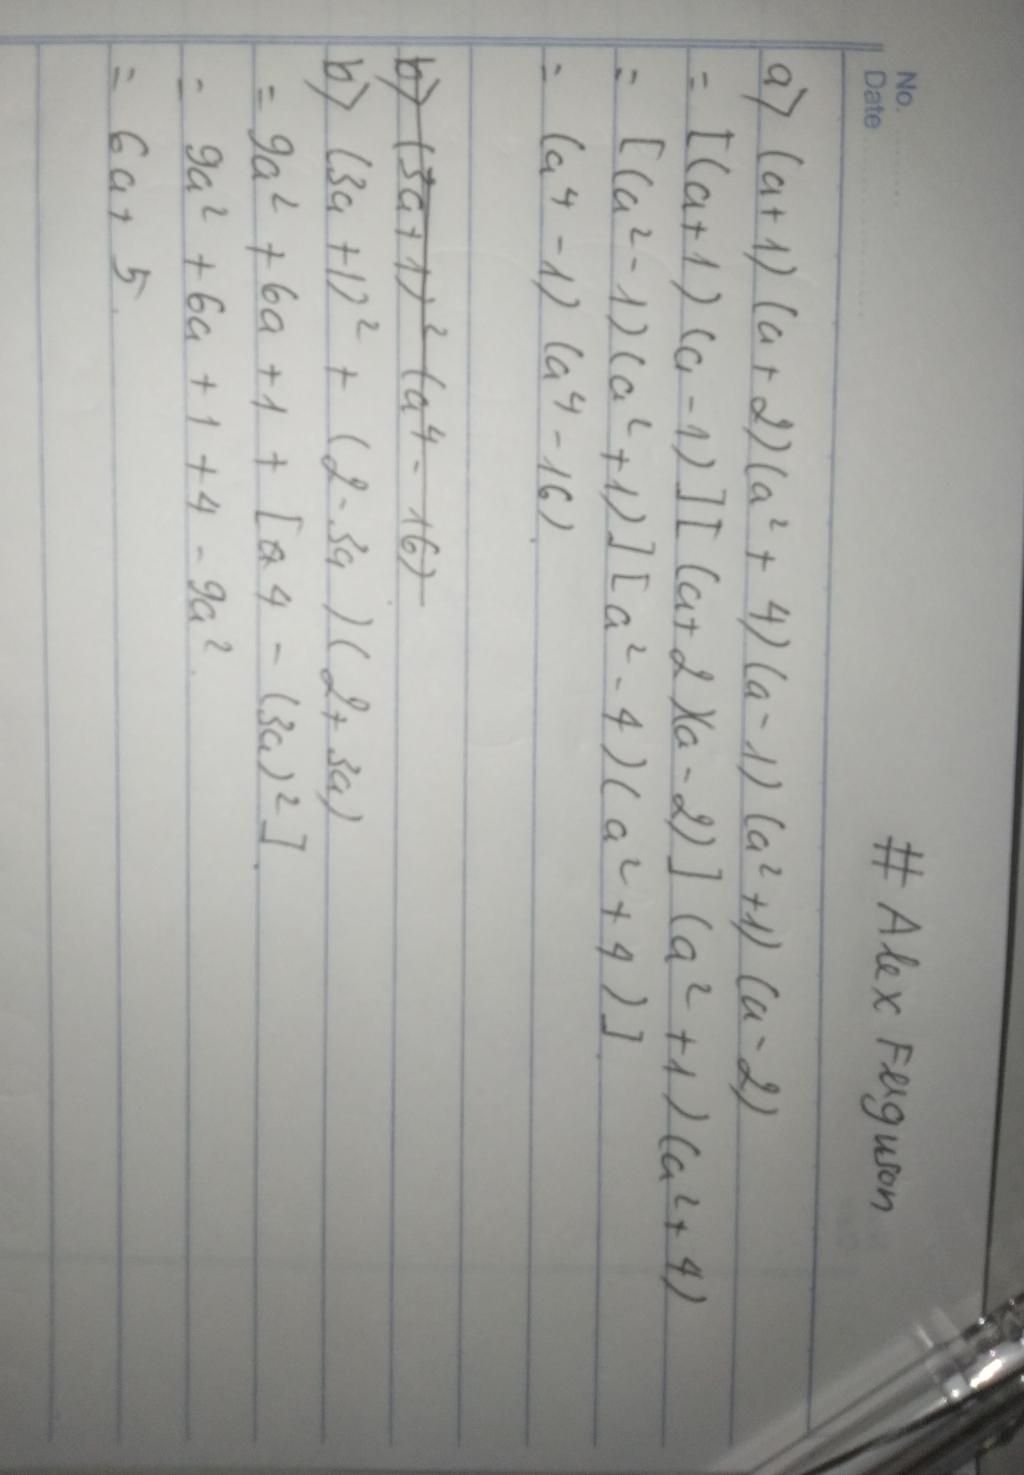 No.
Date
# Alex Ferguson
a) (a+1)(a+2)(a²+4)(a-1)(a²+1)(a-2)
= [(a+1)(a-1)][(a+2)(a-2)](a²+1)(a²+4)
= [(a²-1)(a²+1)][a²-4)(a²+4)]
= (a⁴-1)(a⁴-16)
b) (3a+1)² (a⁴-16)
b) (3a+1)² + (2-3a)(2+3a)
= 9a² + 6a + 1 + [4 - (3a)²]
= 9a² + 6a + 1 + 4 - 9a²
= 6a + 5